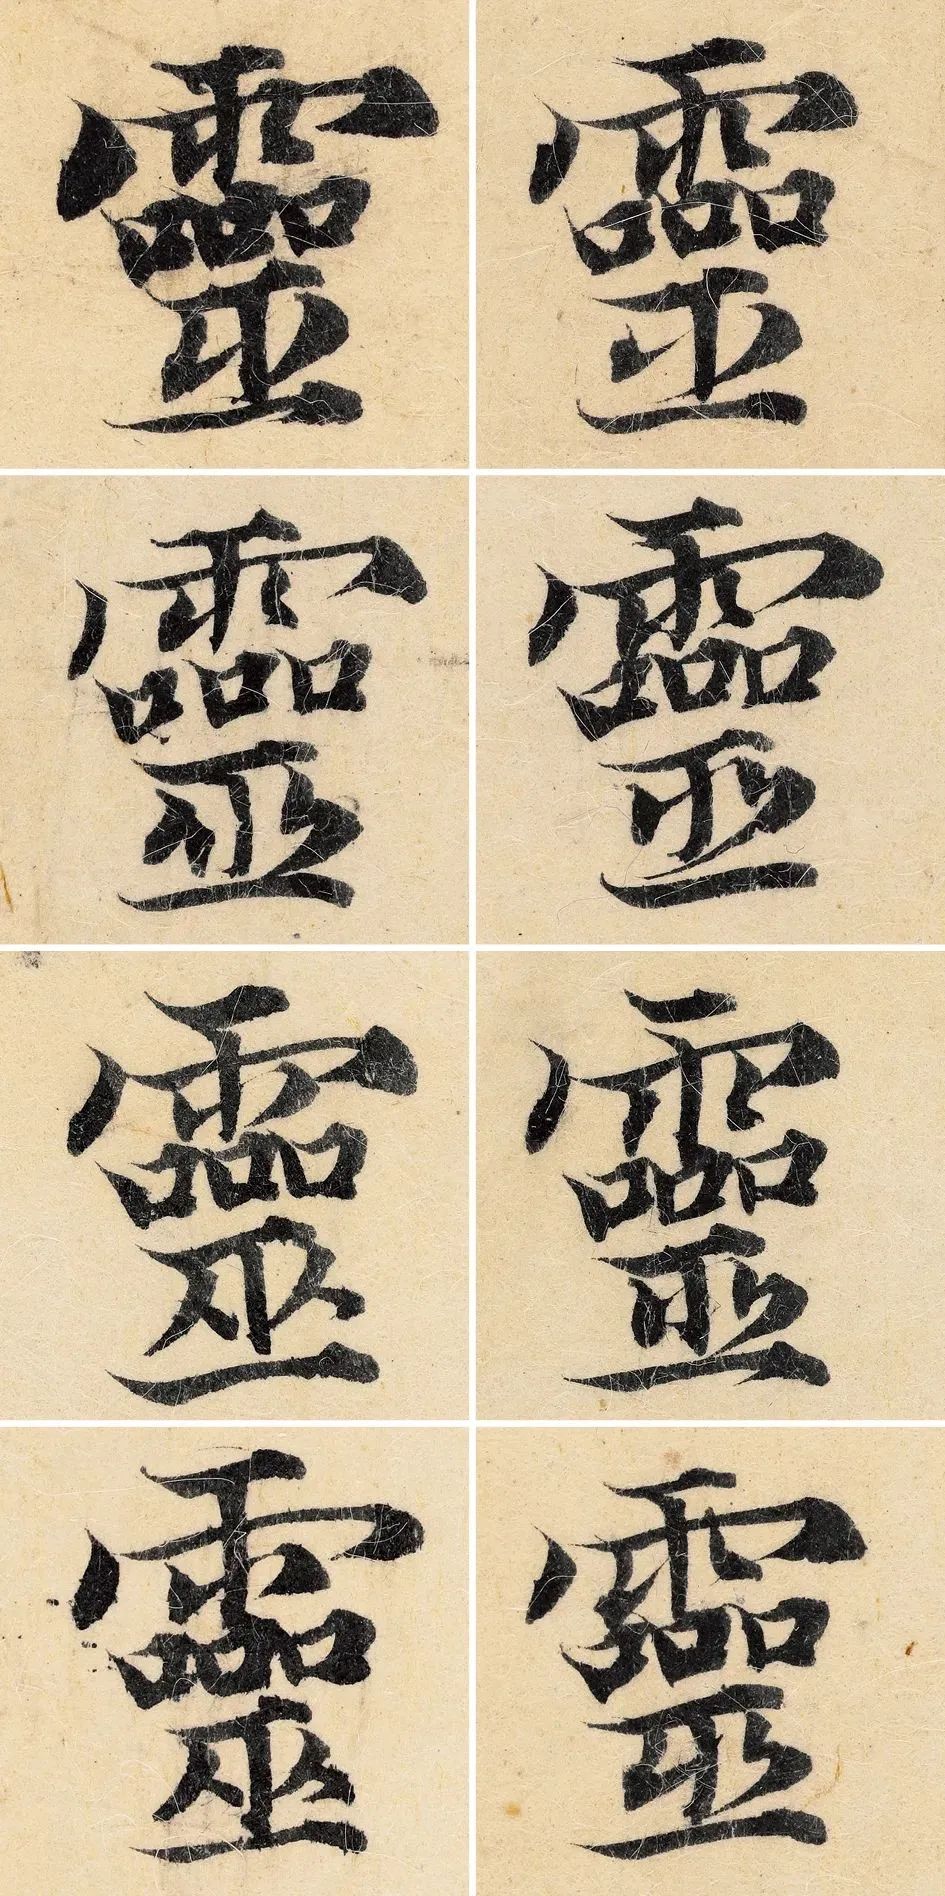 靈 靈
靈 靈
靈 靈
靈 靈